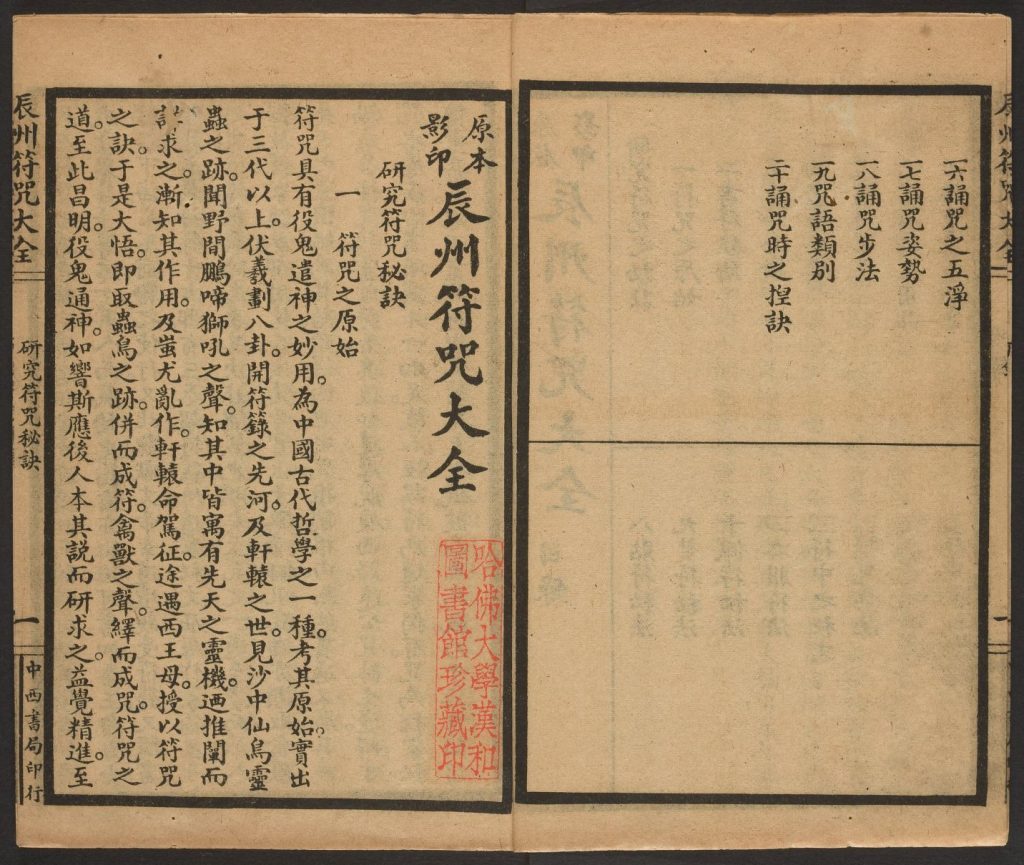 一六誦咒之五淨
一七誦咒姿勢
一八誦咒步法
一九咒語類別
二十誦咒時之揑訣
原本
影印
辰州符咒大全
哈佛大學漢和
圖書館珍藏印
研究符咒秘訣
一 符咒之原始
符咒具有役鬼遣神之妙用。為中國古代哲學之一種。考其原始。實出
于三代以上。伏羲劃八卦。開符籙之先河。及軒轅之世。見沙中仙鳥靈
蟲之跡。聞野間鵬啼獅吼之聲。知其中皆寓有先天之靈機。迺推闡而
求之。漸知其作用。及蚩尤亂作。軒轅命駕征。途遇西王母。授以符咒
之訣。于是大悟。即取蟲鳥之跡。併而成符。禽獸之聲。繹而成咒。符咒之
道。至此昌明。役鬼通神。如響斯應。後人本其說而研求之。益覺精進。至
辰州符咒大全
研究符咒秘訣
一
中西書局印行